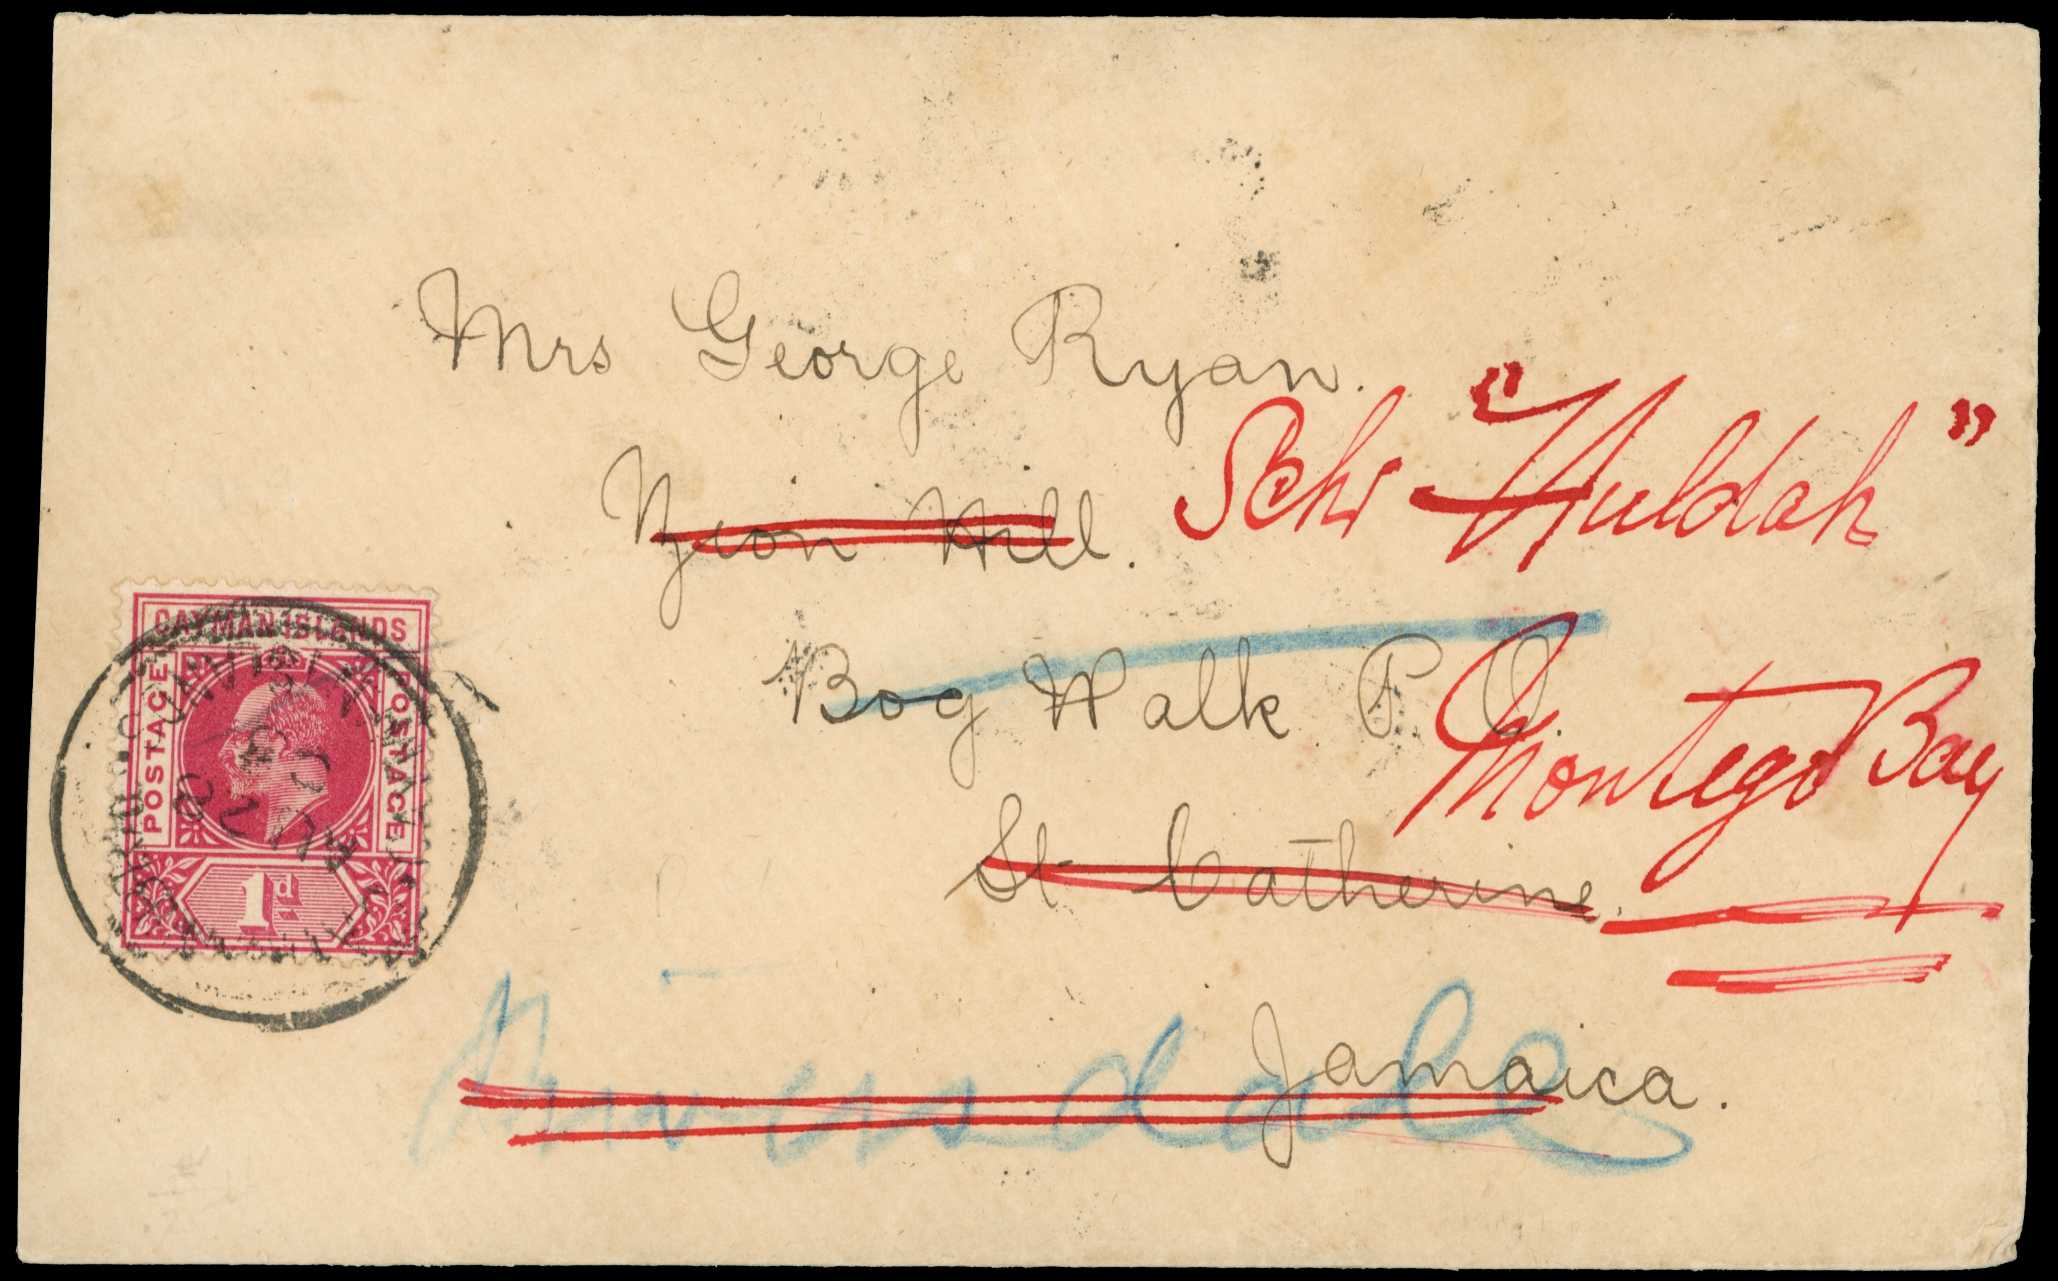 Mrs George Ryan.
Schr "Huldah"
Zion Hill.
Bog Walk P.O.
Montego Bay
St Catherine.
Jamaica.
CAYMAN ISLANDS
POSTAGE
POSTAGE
1d